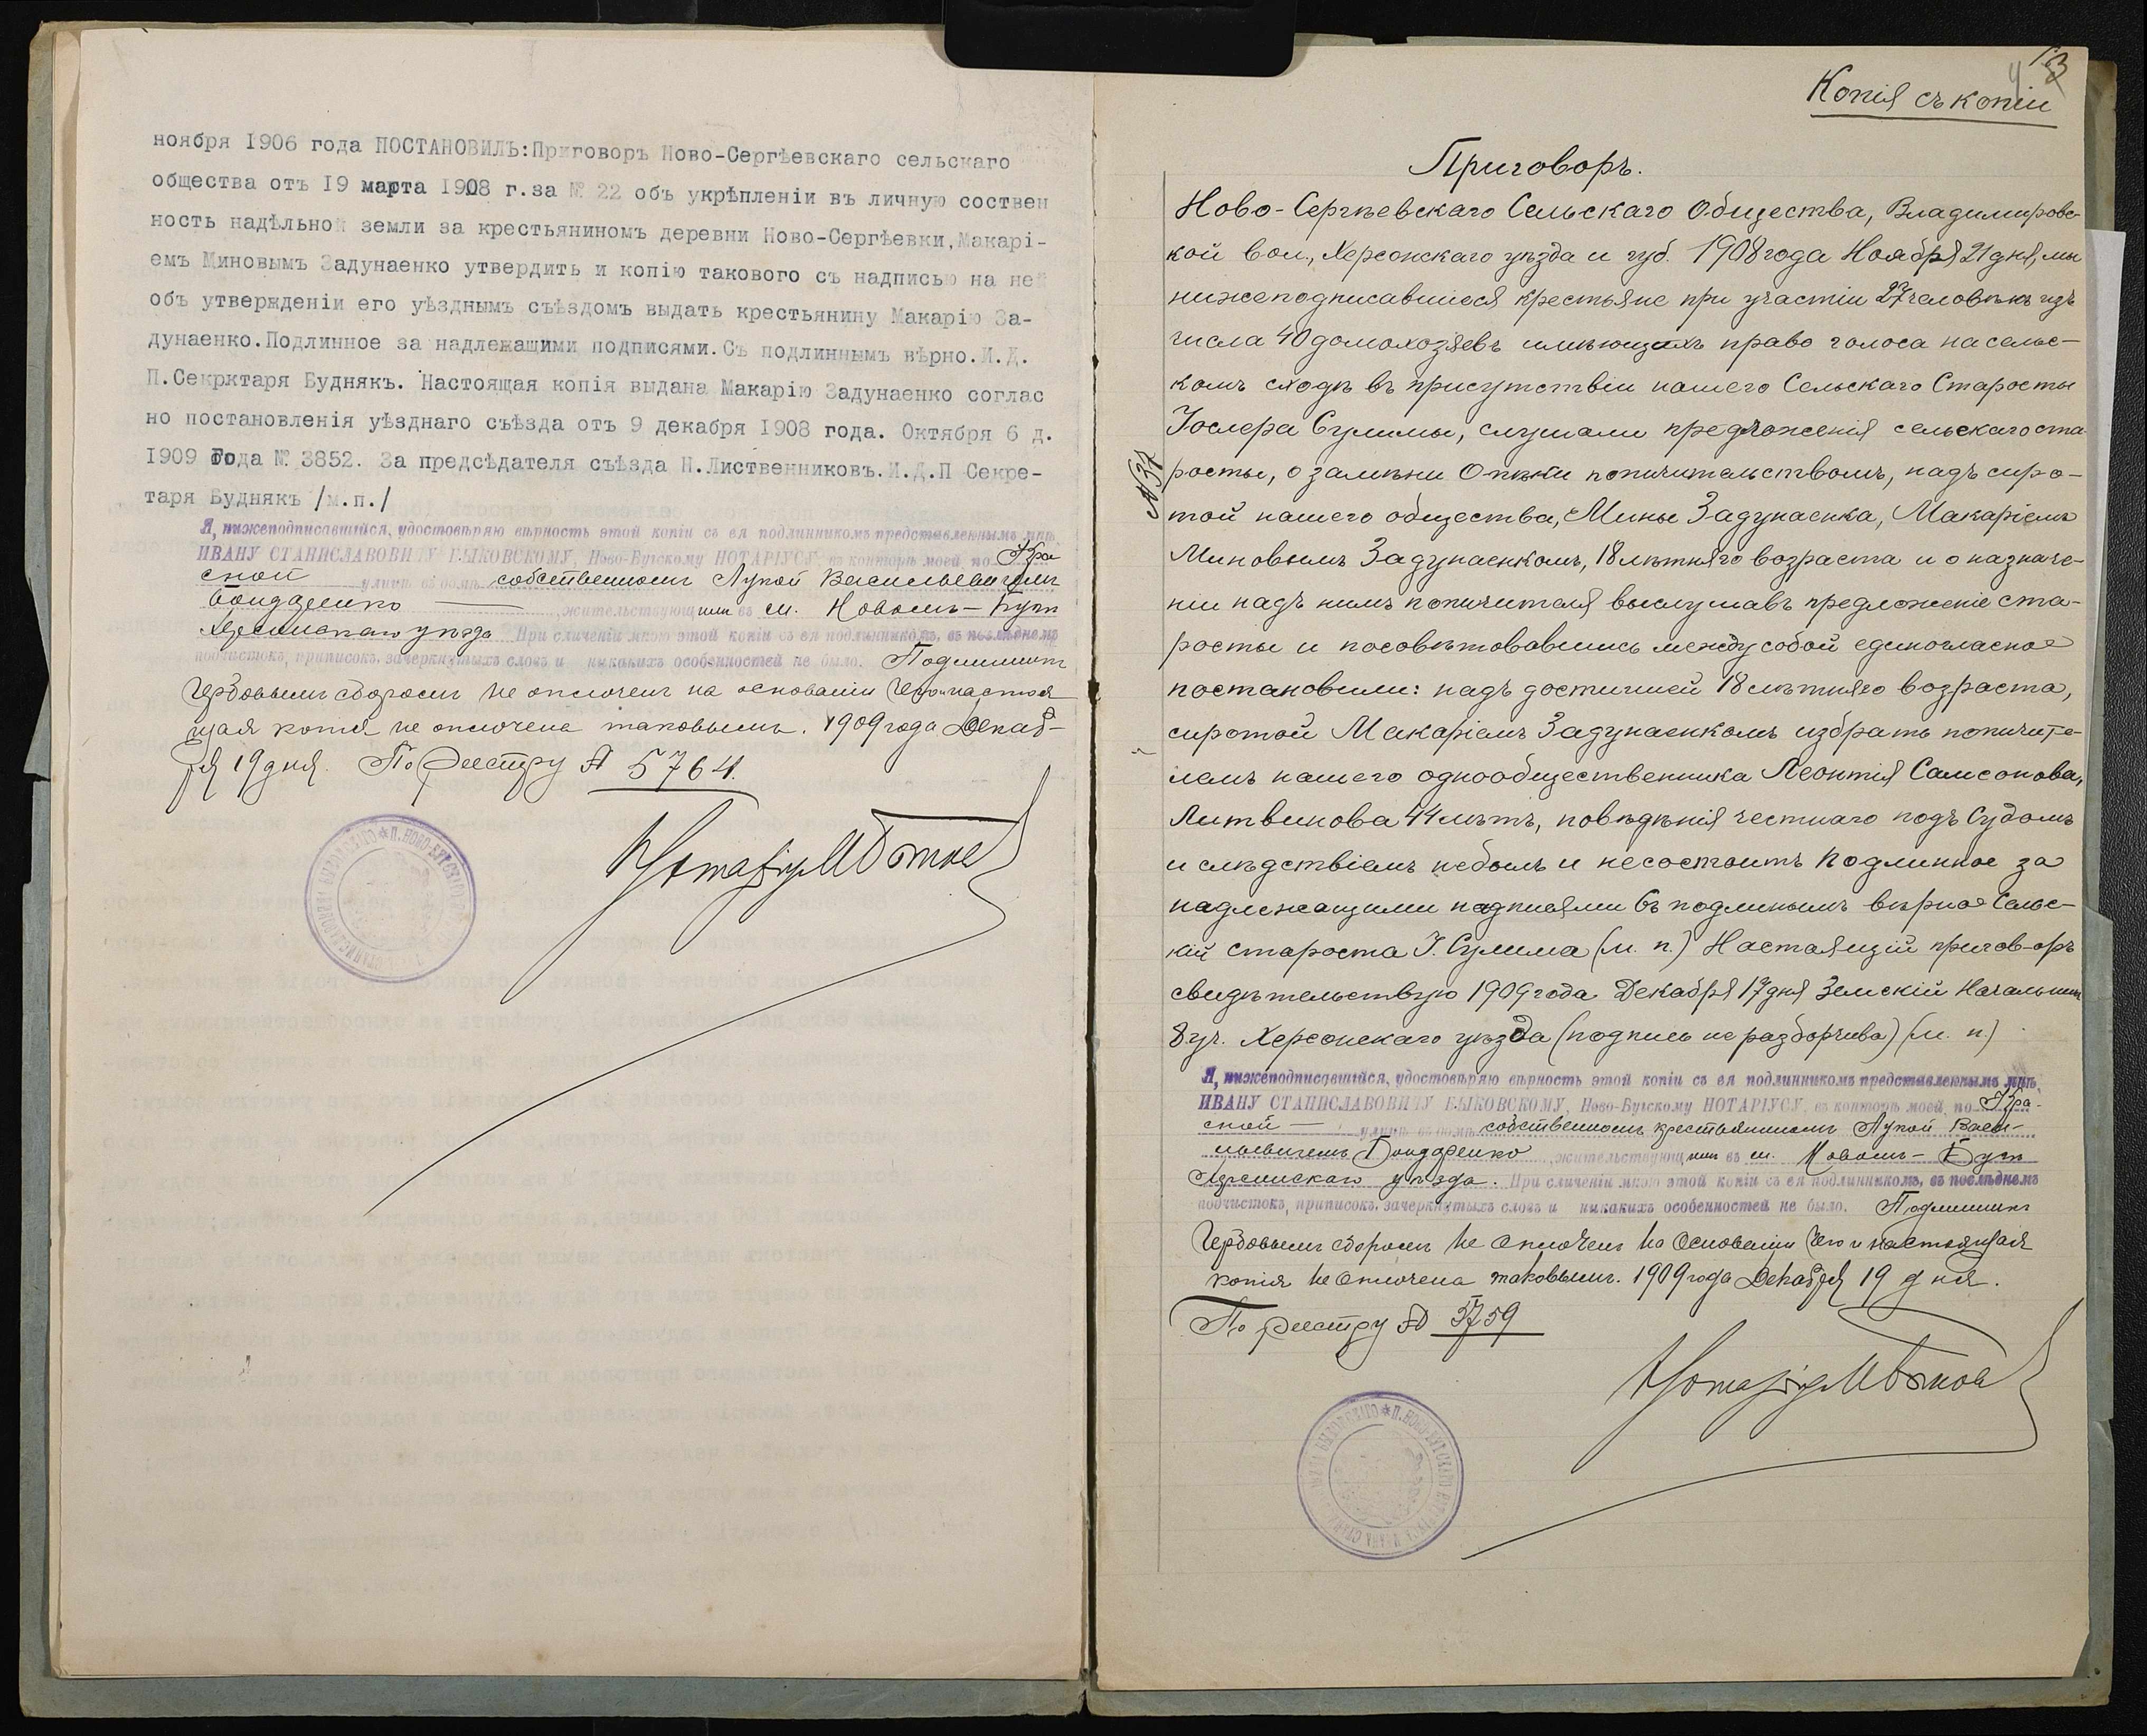 ноября 1906 года ПОСТАНОВИЛЪ:Приговоръ Ново-Сергѣевскаго сельскаго
общества отъ 19 марта 1908 г.за № 22 объ укрѣпленіи въ личную соствен
ность надѣльной земли за крестьяниномъ деревни Ново-Сергѣевки,Макарі-
емъ Миновымъ Задунаенко утвердить и копію такового съ надписью на ней
объ утвержденіи его уѣзднымъ съѣздомъ выдать крестьянину Макарію За-
дунаенко.Подлинное за надлежащими подписями.Съ подлиннымъ вѣрно.И.Д.
П.Секрктаря Буднякъ. Настоящая копія выдана Макарію Задунаенко соглас
но постановленія уѣзднаго съѣзда отъ 9 декабря 1908 года. Октября 6 д.
1909 года № 3852. За предсѣдателя съѣзда Н.Лиственниковъ.И.Д.П Секре-
таря Буднякъ /м.п./
Я, нижеподписавшійся, удостовѣряю вѣрность этой копіи съ ея подлинникомъ представленнымъ мнѣ,
ИВАНУ СТАНИСЛАВОВИЧУ БЫКОВСКОМУ, Ново-Бугскому НОТАРІУСУ, въ конторѣ моей, по Кра
сной улицѣ въ домѣ собственномъ Лукой Васильевичемъ
Бондаренко жительствующимъ въ м. Новомъ-Бугѣ
Херсонскаго уѣзда При сличеніи мною этой копіи съ ея подлинникомъ, въ послѣднемъ
подчистокъ, приписокъ, зачеркнутыхъ словъ и никакихъ особенностей не было. Подлинникъ
гербовымъ сборомъ не оплоченъ на основаніи чего настоя
щая копія не оплочена таковымъ. 1909 года Декаб-
ря 19 дня. По реестру № 5764.
Нотаріусъ
Копія съ копіи
Приговоръ.
Ново-Сергѣевскаго Сельскаго Общества, Владимировс-
кой вол., Херсонскаго уѣзда и губ. 1908 года Ноября 21 дня, мы
нижеподписавшіеся крестьяне при участіи 27 человѣкъ изъ
числа 40 домохозяевъ имѣющихъ право голоса на сельс-
комъ сходѣ въ присутствіи нашего Сельскаго Старосты
Сулимы, слушали предложенія сельскаго ста
№ 37
росты, о замѣни Опѣки попичительствомъ, надъ сиро-
той нашего общества, Мины Задунаенка, Макаріемъ
Миновымъ Задунаенкомъ, 18 лѣтняго возраста и о назначе-
ніи надъ нимъ попичителя выслушавъ предложеніе ста-
росты и посовѣтовавшись между собой единогласно
постановили: надъ достигшей 18 лѣтняго возраста,
сиротой Макаріемъ Задунаенкомъ избрать попичите-
лемъ нашего однообщественника Леонтія Самсонова,
Литвинова 44 лѣтъ, повѣдѣнія честнаго подъ Судомъ
и слѣдствіемъ небылъ и несостоитъ Подлинное за
надлежащими подписями Съ подлинымъ вѣрно Сельс-
кій староста І. Сулима (м. п.) Настоящій приговоръ
свидѣтельствую 1909 года Декабря 17 дня Земскій Начальникъ
8 уч. Херсонскаго уѣзда (подпись не разборчива) (м. п.)
Я, нижеподписавшійся, удостовѣряю вѣрность этой копіи съ ея подлинникомъ представленнымъ мнѣ,
ИВАНУ СТАНИСЛАВОВИЧУ БЫКОВСКОМУ, Ново-Бугскому НОТАРІУСУ, въ конторѣ моей, по Кра-
сной улицѣ въ домѣ собственномъ крестьяниномъ Лукой Васи-
льевичемъ Бондаренко жительствующимъ въ м. Новомъ-Бугѣ
Херсонскаго уѣзда. При сличеніи мною этой копіи съ ея подлинникомъ, въ послѣднемъ
подчистокъ, приписокъ, зачеркнутыхъ словъ и никакихъ особенностей не было. Подлинникъ
гербовымъ сборомъ не оплоченъ на основаніи чего и настоящая
копія не оплочена таковымъ. 1909 года Декабря 19 дня.
По реестру № 5759
Нотаріусъ